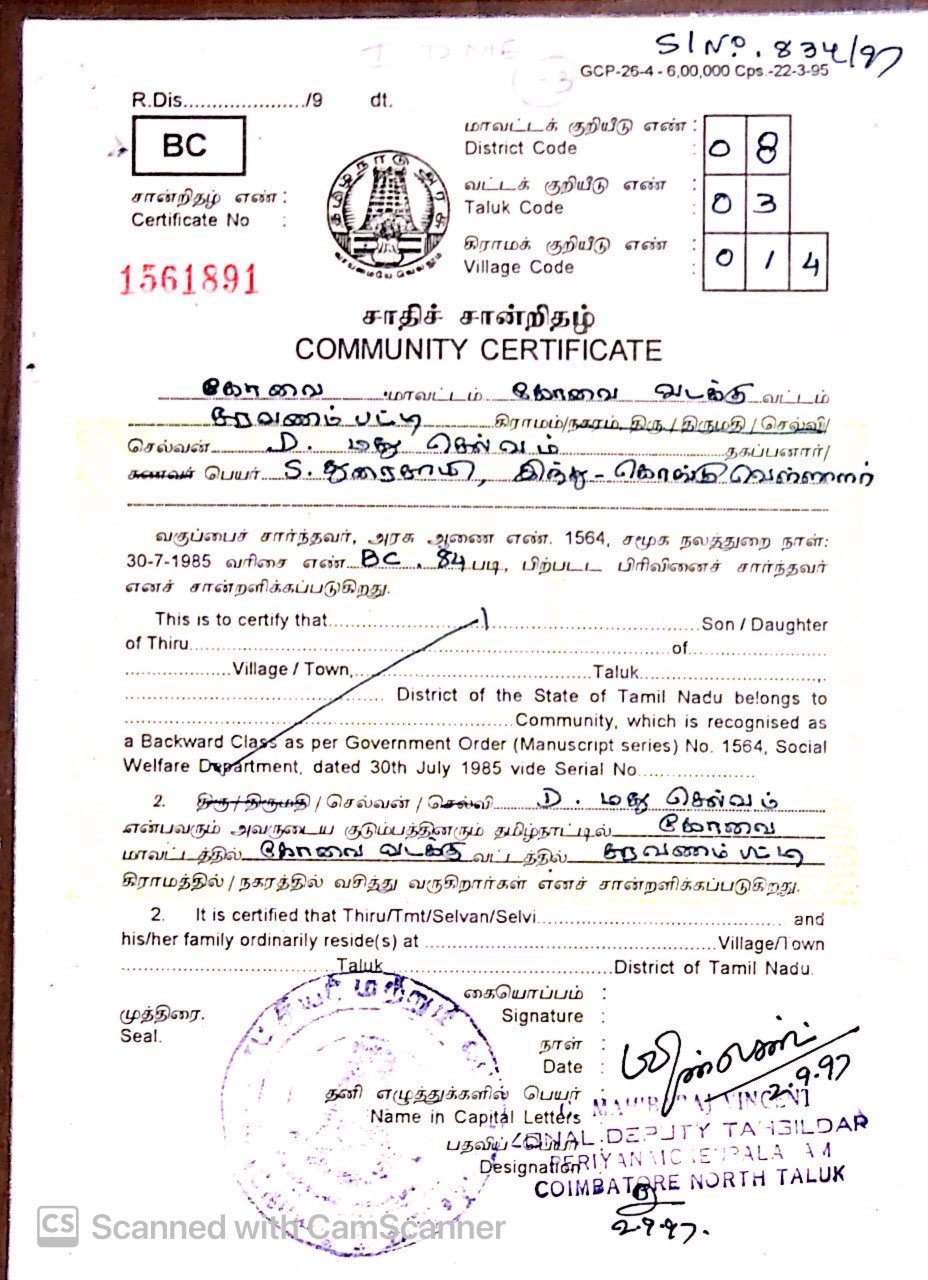 S/No. 834/97
GCP-26-4 - 6,00,000 Cps.-22-3-95
R.Dis...................../9 dt.
BC
மாவட்டக் குறியீடு எண் : 08
District Code :
சான்றிதழ் எண் :
Certificate No :
வட்டக் குறியீடு எண் : 03
Taluk Code :
கிராமக் குறியீடு எண் : 014
Village Code :
தமிழ்நாடு அரசு
வாய்மையே வெல்லும்
1561891
சாதிச் சான்றிதழ்
COMMUNITY CERTIFICATE
கோவை மாவட்டம் கோவை வடக்கு வட்டம்
சரவணம்பட்டி கிராமம்/நகரம், திரு / திருமதி / செல்வி/
செல்வன் D. மது செல்வம் தகப்பனார்/
கணவர் பெயர் S. துரைசாமி, இந்து - கொங்கு வெள்ளாளர்
வகுப்பைச் சார்ந்தவர், அரசு ஆணை எண். 1564, சமூக நலத்துறை நாள்:
30-7-1985 வரிசை எண் BC. 84 படி, பிற்பட்ட பிரிவினைச் சார்ந்தவர்
எனச் சான்றளிக்கப்படுகிறது.
This is to certify that..............................Son / Daughter
of Thiru..............................of....................
....................Village / Town,..............................Taluk....................,
.............................. District of the State of Tamil Nadu belongs to
..............................Community, which is recognised as
a Backward Class as per Government Order (Manuscript series) No. 1564, Social
Welfare Department, dated 30th July 1985 vide Serial No....................
2. திரு / திருமதி / செல்வன் / செல்வி D. மது செல்வம்
என்பவரும் அவருடைய குடும்பத்தினரும் தமிழ்நாட்டில் கோவை
மாவட்டத்தில் கோவை வடக்கு வட்டத்தில் சரவணம்பட்டி
கிராமத்தில் / நகரத்தில் வசித்து வருகிறார்கள் எனச் சான்றளிக்கப்படுகிறது.
2. It is certified that Thiru/Tmt/Selvan/Selvi.............................. and
his/her family ordinarily reside(s) at ..............................Village/Town
....................Taluk..............................District of Tamil Nadu.
கையொப்பம் :
முத்திரை.
Signature :
Seal.
நாள் :
Date : 2.9.97
தனி எழுத்துக்களில் பெயர் :
Name in Capital Letters VINCENT
பதவிப் பெயர்
ZONAL DEPUTY TAHSILDAR
Designation
COIMBATORE NORTH TALUK
2.9.97.
CS Scanned with CamScanner